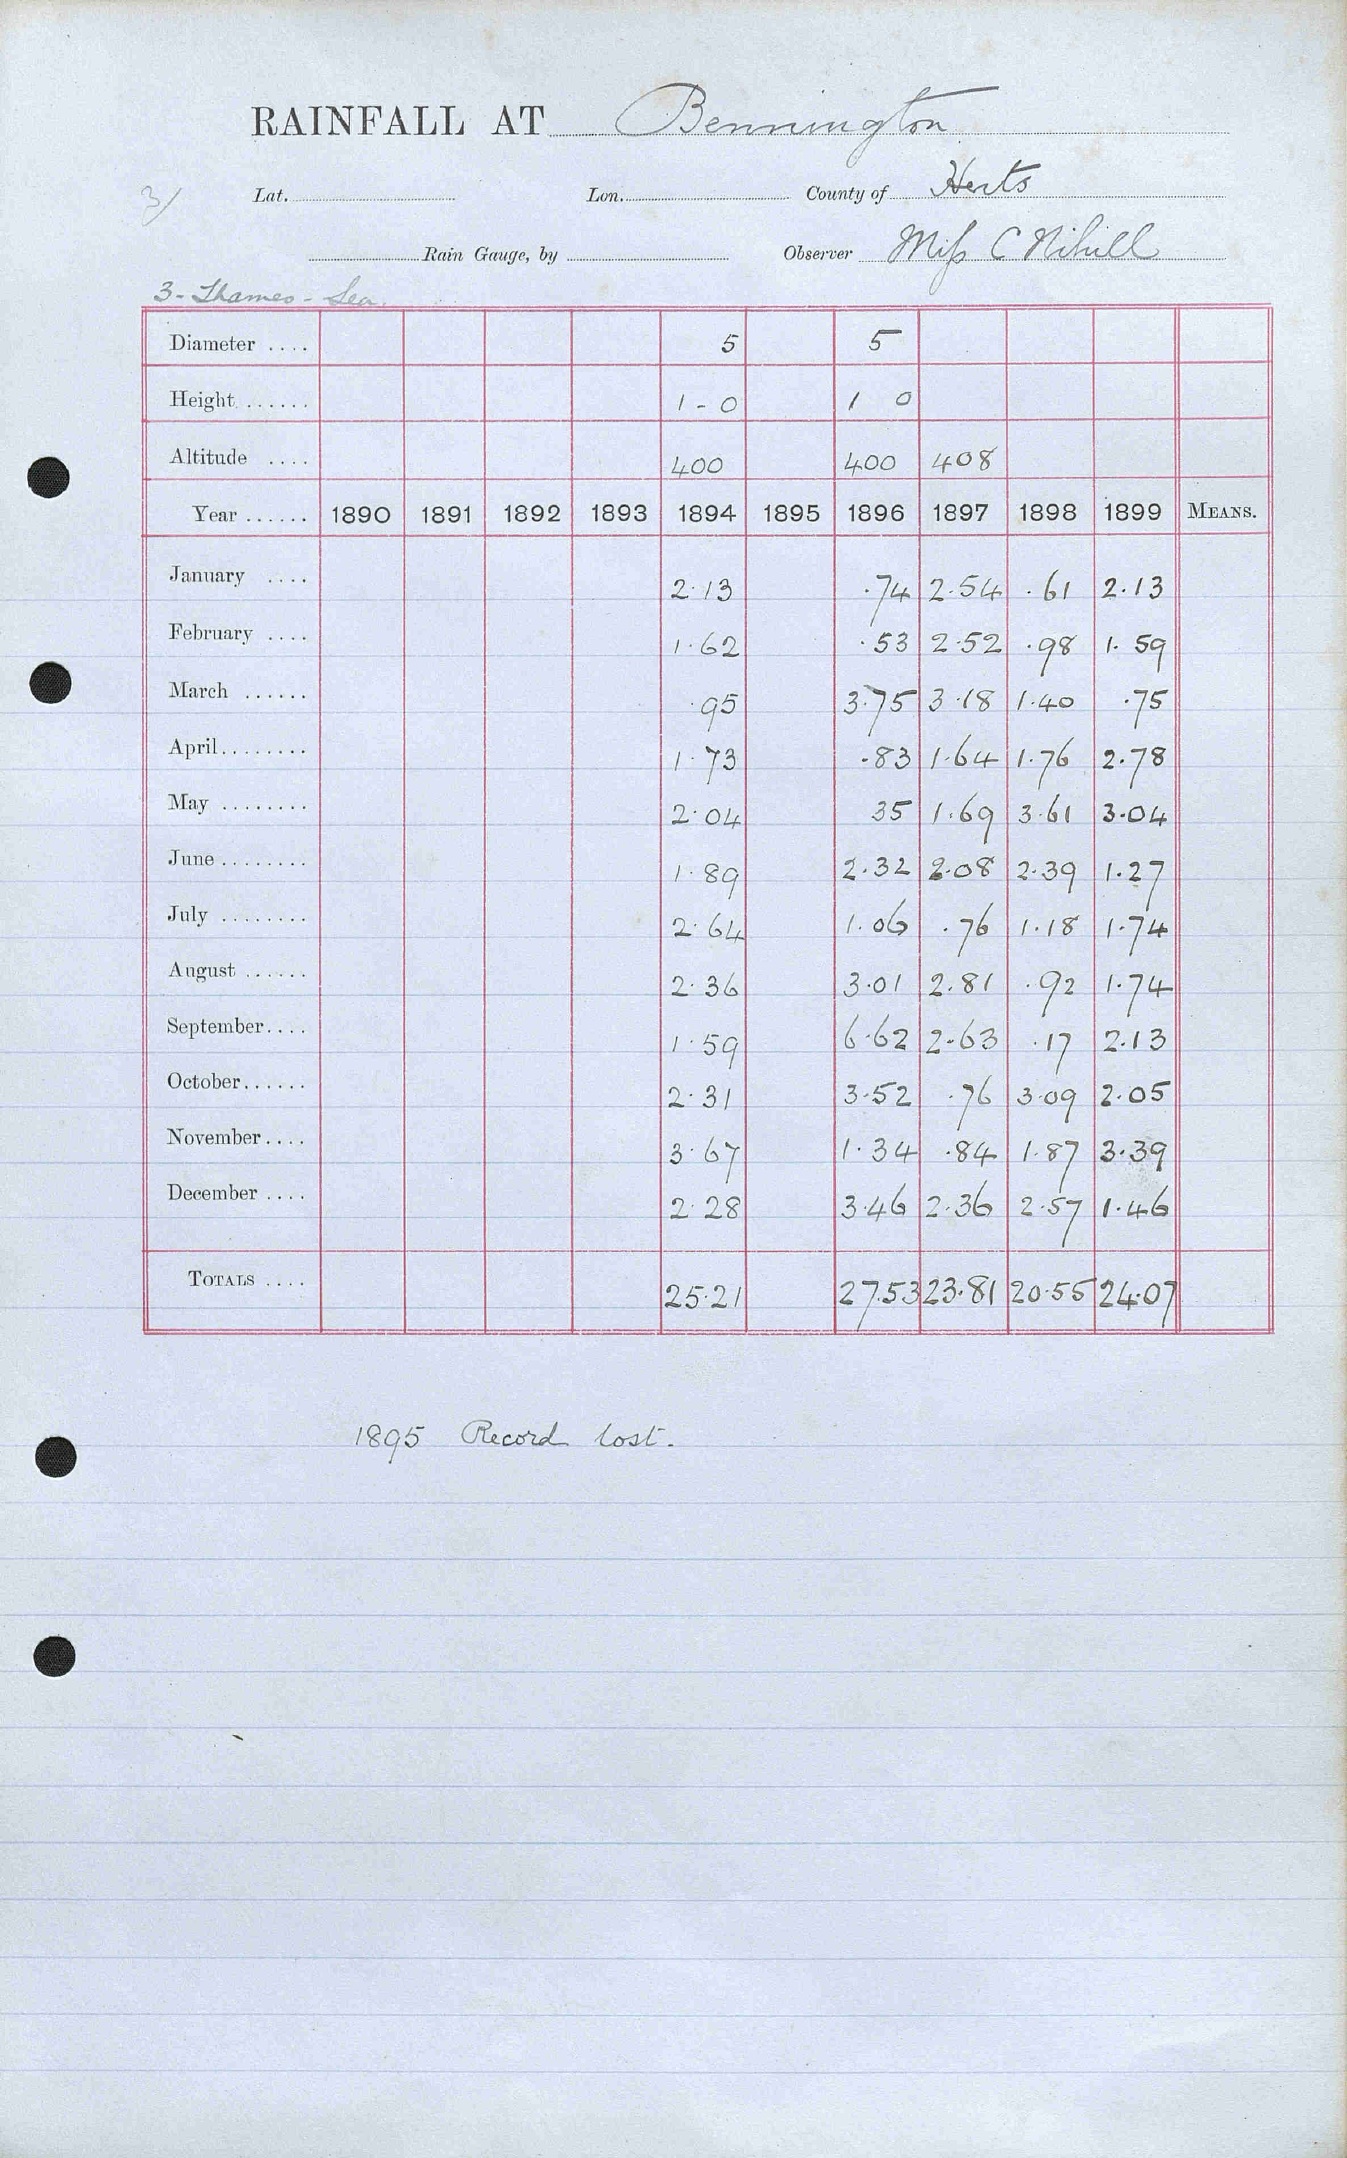 RAINFALL AT Bennington
3/ Lat. Lon. County of Herts
Rain Gauge, by Observer Miss C Nihill
3 - Thames - Lea.
Diameter .... 5 5
Height ...... 1 - 0 1 0
Altitude .... 400 400 408
Year ...... 1890 1891 1892 1893 1894 1895 1896 1897 1898 1899 MEANS.
January .... 2.13 .74 2.54 .61 2.13
February .... 1.62 .53 2.52 .98 1.59
March ...... .95 3.75 3.18 1.40 .75
April........ 1.73 .83 1.64 1.76 2.78
May ........ 2.04 35 1.69 3.61 3.04
June ........ 1.89 2.32 2.08 2.39 1.27
July ........ 2.64 1.06 .76 1.18 1.74
August ...... 2.36 3.01 2.81 .92 1.74
September.... 1.59 6.62 2.63 .17 2.13
October...... 2.31 3.52 .76 3.09 2.05
November.... 3.67 1.34 .84 1.87 3.39
December .... 2.28 3.46 2.36 2.57 1.46
TOTALS .... 25.21 27.53 23.81 20.55 24.07
1895 Record lost.